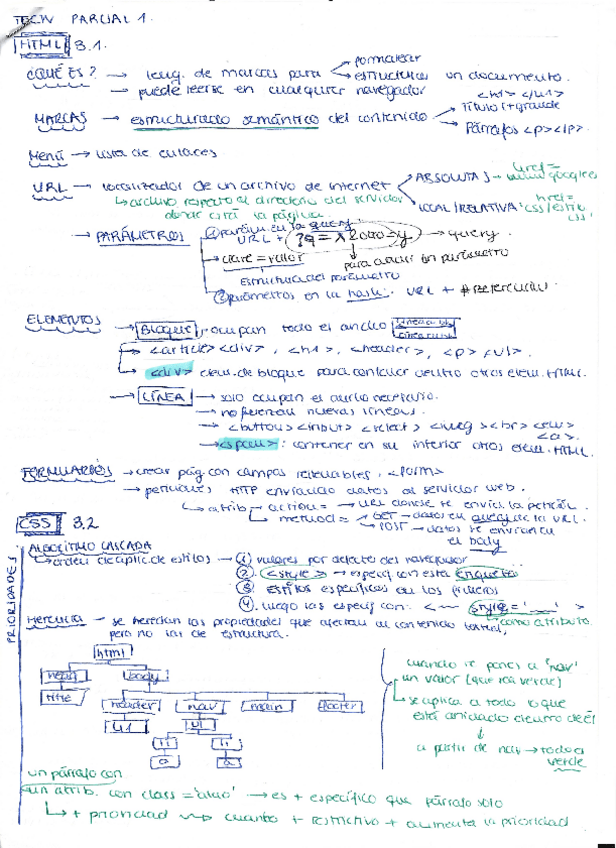 TECW PARCIAL 1.
HTML 3.1.
¿QUÉ ES? → leng. de marcas para → formatear
→ estructurar un documento.
→ puede leerse en cualquier navegador
<h1> </h1>
MARCAS → estructurado semántico del contenido → Título 1 + grande
→ Párrafos <p></p>.
Menú → lista de enlaces
URL → localizador de un archivo de internet → ABSOLUTA → href= www.google.es
↳ archivo respecto al directorio del servidor donde está la página.
LOCAL/RELATIVA: href= css/estilo.css
→ PARÁMETROS ① parám. en la query
URL + → query.
clave = valor
para añadir un parámetro
Estructura del parámetro
② parámetros en la hash: URL + #
ELEMENTOS → BLOQUE, ocupan todo el ancho
→ <article> <div>, <h1>, <header>, <p> <ul>.
→ <div> elem. de bloque para contener dentro otros elem. HTML.
→ LÍNEA → solo ocupan el ancho necesario.
→ no fuerzan nuevas líneas.
→ <button> <input> <select> <img> <br> <em> <a>.
→ <span>: contener en su interior otros elem. HTML.
FORMULARIOS → crear pág con campos rellenables, <form>
→ peticiones HTTP enviando datos al servidor web.
↳ atrib → action= → URL donde se envía la petición.
↳ method = GET → datos en query de la URL.
↳ POST → datos se envían en el body
CSS 3.2
PRIORIDADES
ALGORITMO CASCADA
↳ orden de aplic. de estilos → ① valores por defecto del navegador
② <style> → especif. con esta etiqueta
③ estilos específicos
④ luego los especif con: <~~ style='___' >
como atributo.
Herencia → se heredan las propiedades que afectan al contenido textual, pero no las de estructura.
html
head body
title header nav main footer
h1 ul
li li
a a
cuando le pones a 'nav' un valor (que sea verde)
↳ se aplica a todo lo que está anidado dentro de él
↓
a partir de nav → todo a verde
un párrafo con
un atrib. con class = → es + específico que párrafo solo
↳ + prioridad ~> cuanto + restrictivo + aumenta la prioridad